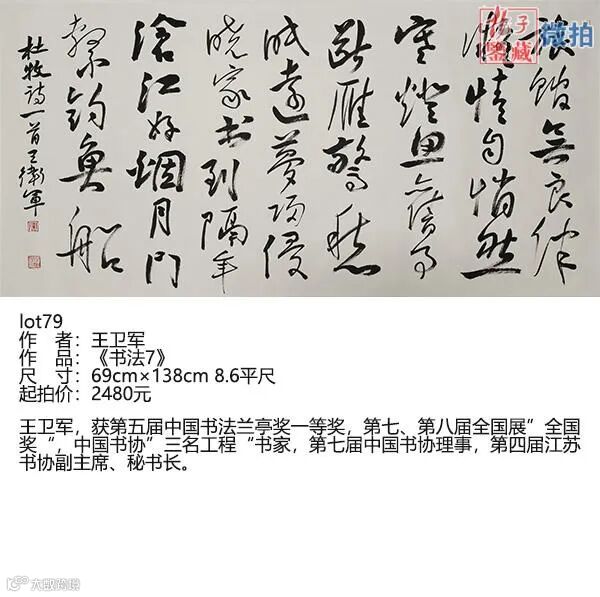 旅館無良伴
凝情自悄然
寒燈思舊事
斷雁驚愁
眠遠夢歸侵
曉家书到隔年
滄江好烟月門
繫釣魚船
杜牧詩一首王衛軍
子
鉴藏
微拍
lot79
作 者：王卫军
作 品：《书法7》
尺 寸：69cm×138cm 8.6平尺
起拍价：2480元
王卫军，获第五届中国书法兰亭奖一等奖，第七、第八届全国展”全国
奖“，中国书协”三名工程“书家，第七届中国书协理事，第四届江苏
书协副主席、秘书长。
大数跨境